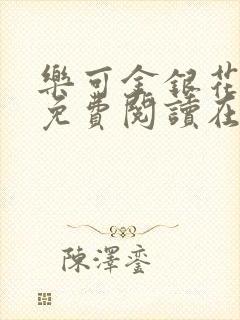 樂可金銀花
免費閱讀在
陳澤鑾